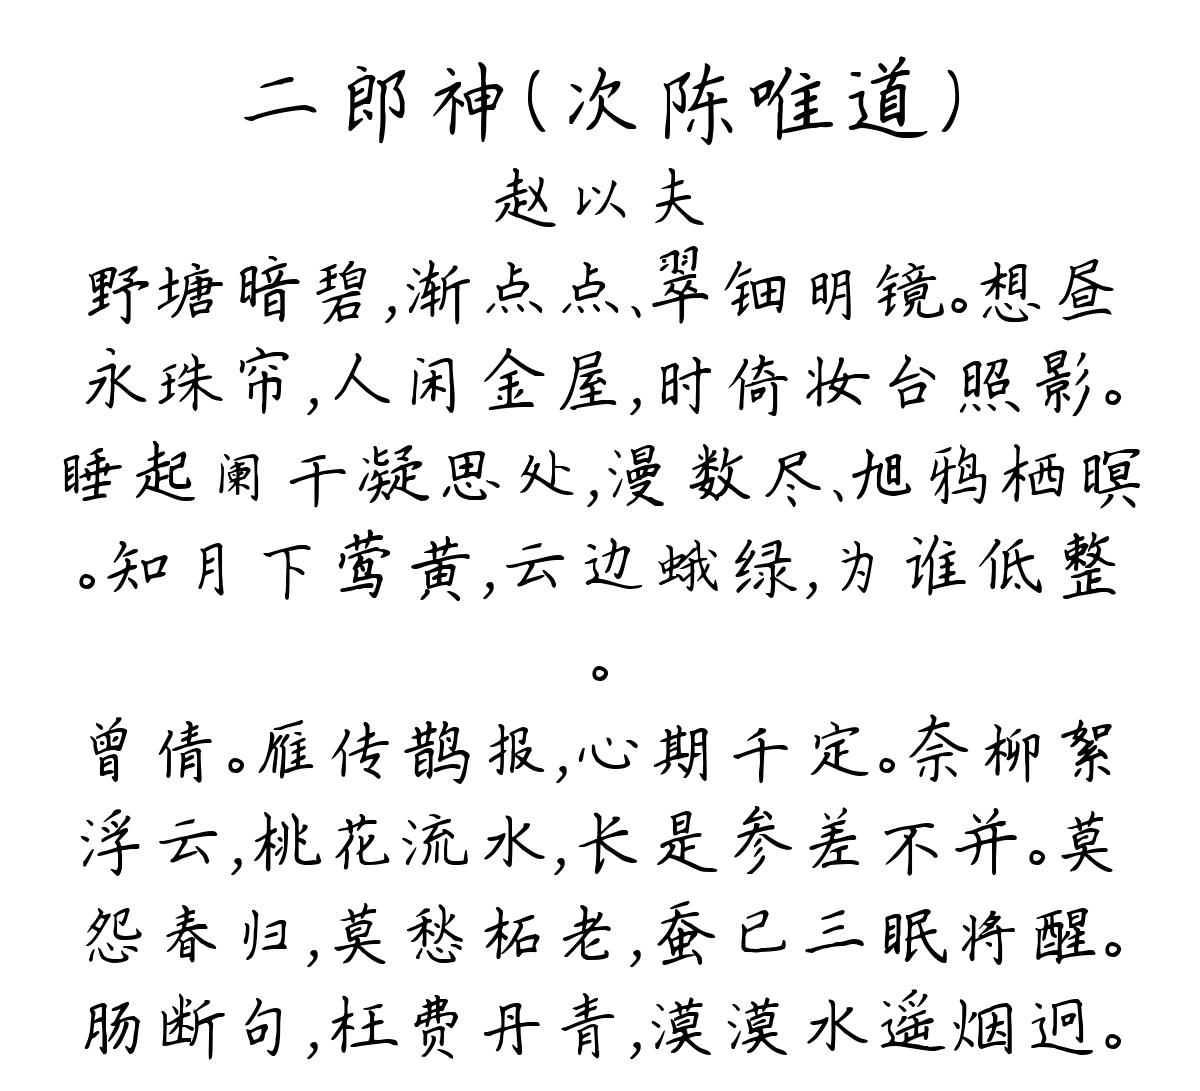 二郎神(次陈唯道)
赵以夫
野塘暗碧,渐点点、翠钿明镜。想昼
永珠帘,人闲金屋,时倚妆台照影。
睡起阑干凝思处,漫数尽、旭鸦栖暝
。知月下莺黄,云边蛾绿,为谁低整
。
曾倩。雁传鹊报,心期千定。奈柳絮
浮云,桃花流水,长是参差不并。莫
怨春归,莫愁柘老,蚕已三眠将醒。
肠断句,枉费丹青,漠漠水遥烟迥。